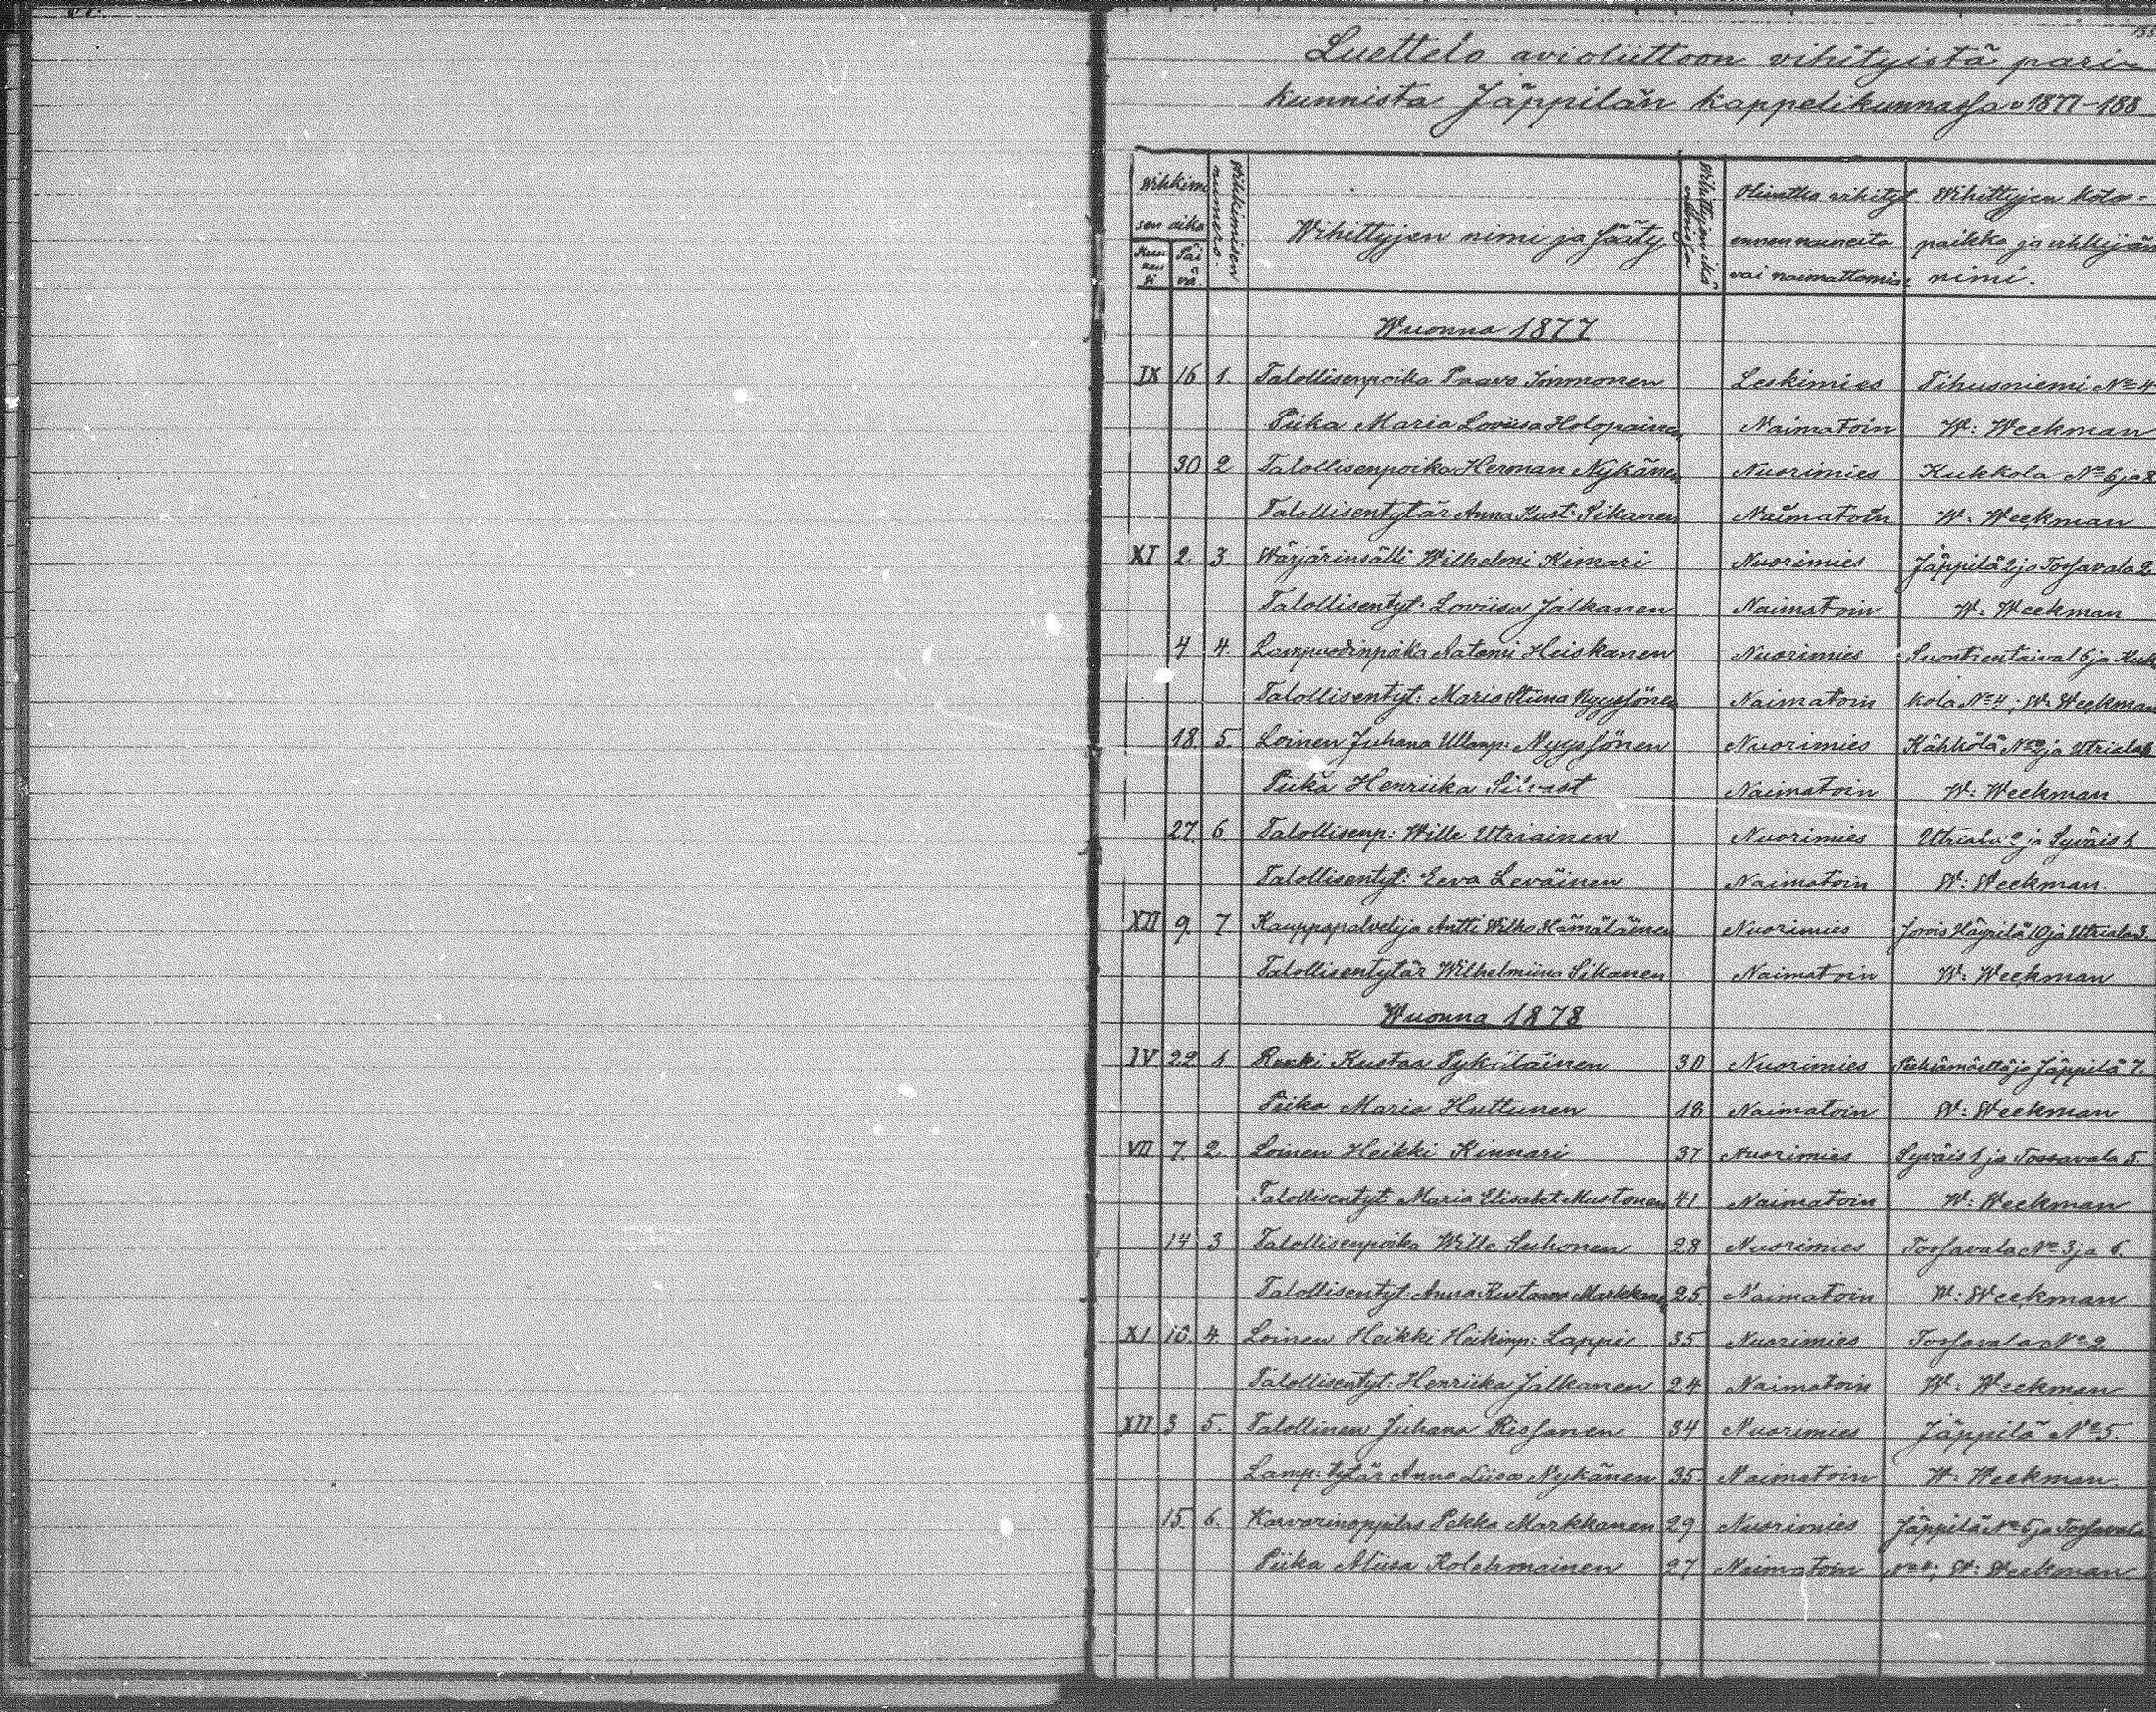 Luettelo avioliittoon vihityistä pari-
kunnista Jäppilän kappelikunnassa v 1877-188
Wihkimi
sen aika
Kuu
kau
si
Päi
vä.
Wihkimisen
numero.
Wihittyjen nimi ja sääty
Wihittyjen ikä
vuosissa
Olivatko vihityt
ennen naineita
vai naimattomia:
Wihittyjen koto-
paikka ja vihkijän
nimi.
Wuonna 1877
IX 16 1. Talollisenpoika Paavo Immonen Leskimies Tihusniemi No 4
Piika Maria Loviisa Holopainen Naimatoin W: Weckman
30 2 Talollisenpoika Herman Nykänen Nuorimies Kukkola No 6 ja 8
Talollisentytär Anna Kust: Sikanen Naimatoin W: Weckman
XI 2. 3 Wärjärinsälli Wilhelmi Kimari Nuorimies Jäppilä 2 ja Tossavala 2
Talollisentyt: Loviisa Jalkanen Naimatoin W: Weckman
4 4. Lampuodinpoika Natami Heiskanen Nuorimies Suontientaival 6 ja Kuk
Talollisentyt: Maria Stiina Nyyssönen Naimatoin kola No 4; W: Weckman
18 5. Loinen Juhana Ullanp: Nyyssönen Nuorimies Kähkölä No 2 ja Utriala
Piika Henriika Silvast Naimatoin W: Weckman.
27. 6. Talollisenp: Wille Utriainen Nuorimies Utriala 2 ja Syväis 1
Talollisentyt: Eeva Leväinen Naimatoin W: Weckman.
XII 9. 7 Kauppapalvelija Antti Wilho Hämäläinen Nuorimies Jorois Häyrilä 10 ja Utriala 3.
Talollisentytär Wilhelmiina Sikanen Naimatoin W: Weckman
Wuonna 1878
IV 22 1 Renki Kustaa Pykäläinen 30 Nuorimies ja Jäppilä 7.
Piika Maria Huttunen 18 Naimatoin W: Weckman
VII 7. 2. Loinen Heikki Kinnari 37 Nuorimies Syväis 1 ja Tossavala 5.
Talollisentyt: Maria Elisabet Mustonen 41. Naimatoin W: Weckman
14 3 Talollisenpoika Wille Suhonen 28 Nuorimies Tossavala No 3 ja 6.
Talollisentyt: Anna Kustaava Markkanen 25. Naimatoin W: Weckman
XI 10. 4. Loinen Heikki Heikinp: Lappi 35 Nuorimies Tossavala No 2
Talollisentyt: Henriika Jalkanen 24 Naimatoin W: Weckman
XII 3 5. Talollinen Juhana Rissanen 34 Nuorimies Jäppilä No 5.
Lamp: tytär Anna Liisa Nykänen 35. Naimatoin W: Weckman.
15. 6. Karvarinoppilas Pekka Markkanen 29 Nuorimies Jäppilä No 5 ja Tossavala
Piika Miina Kolehmainen 27 Naimatoin W: Weckman